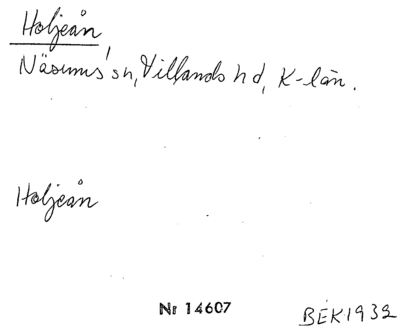 Holjeån
Näsums sn, Villands hd, K-län.
Holjeån
Nr 14607
BEK1932